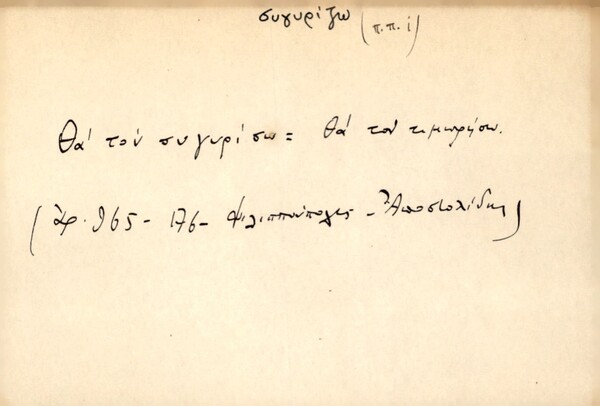 συγυρίζω (π.π. ί)
Θά τόν συγυρίσω = θά τόν τιμωρήσω.
(ἀρ. 965 - 176 - Φιλιππούπολις - Ἀποστολίδης)